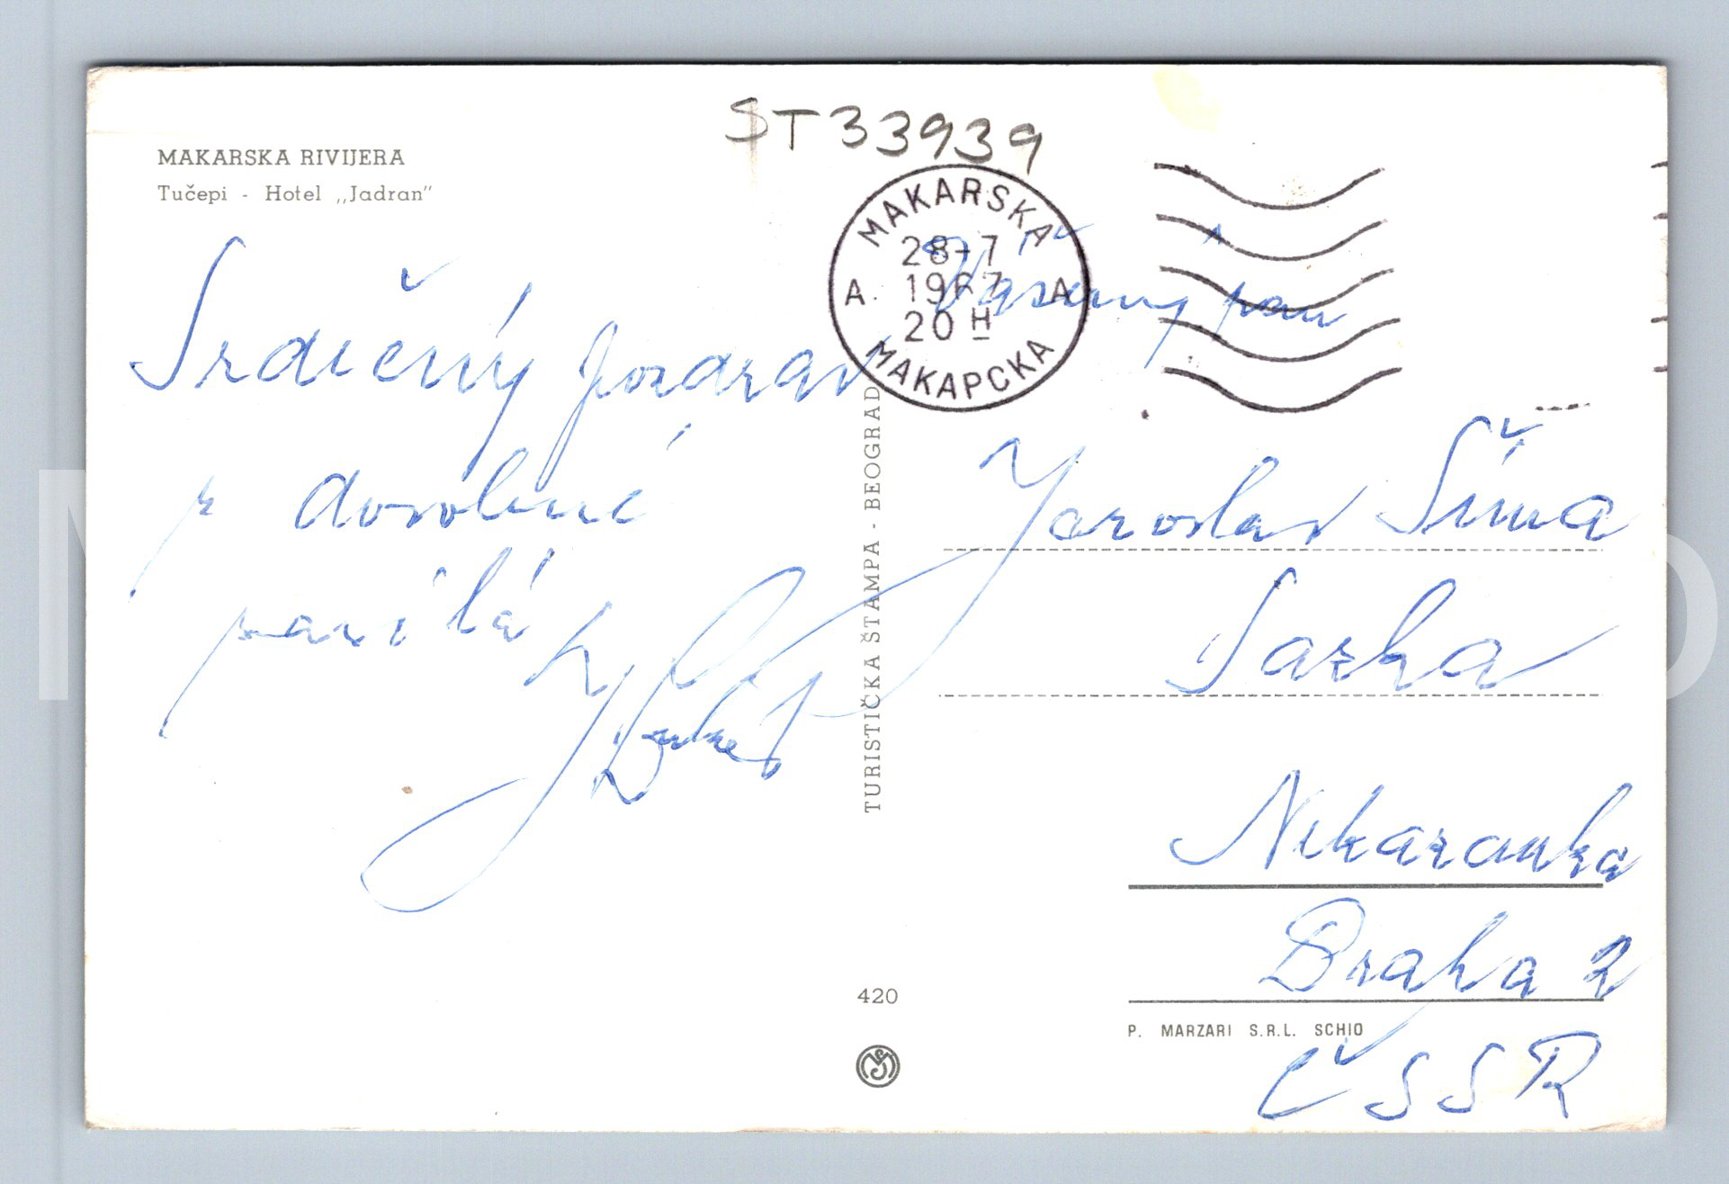 ST33939
MAKARSKA RIVIJERA
Tučepi - Hotel „Jadran”
Srdečný pozdrav
z dovolené
posílá
MAKARSKA
28-7
1967
A A
20 H
МАКАРСКА
Vážený pan
Jaroslav Šíma
Nekázanka
Praha 2
ČSSR
TURISTIČKA ŠTAMPA - BEOGRAD
420
P. MARZARI S.R.L. SCHIO